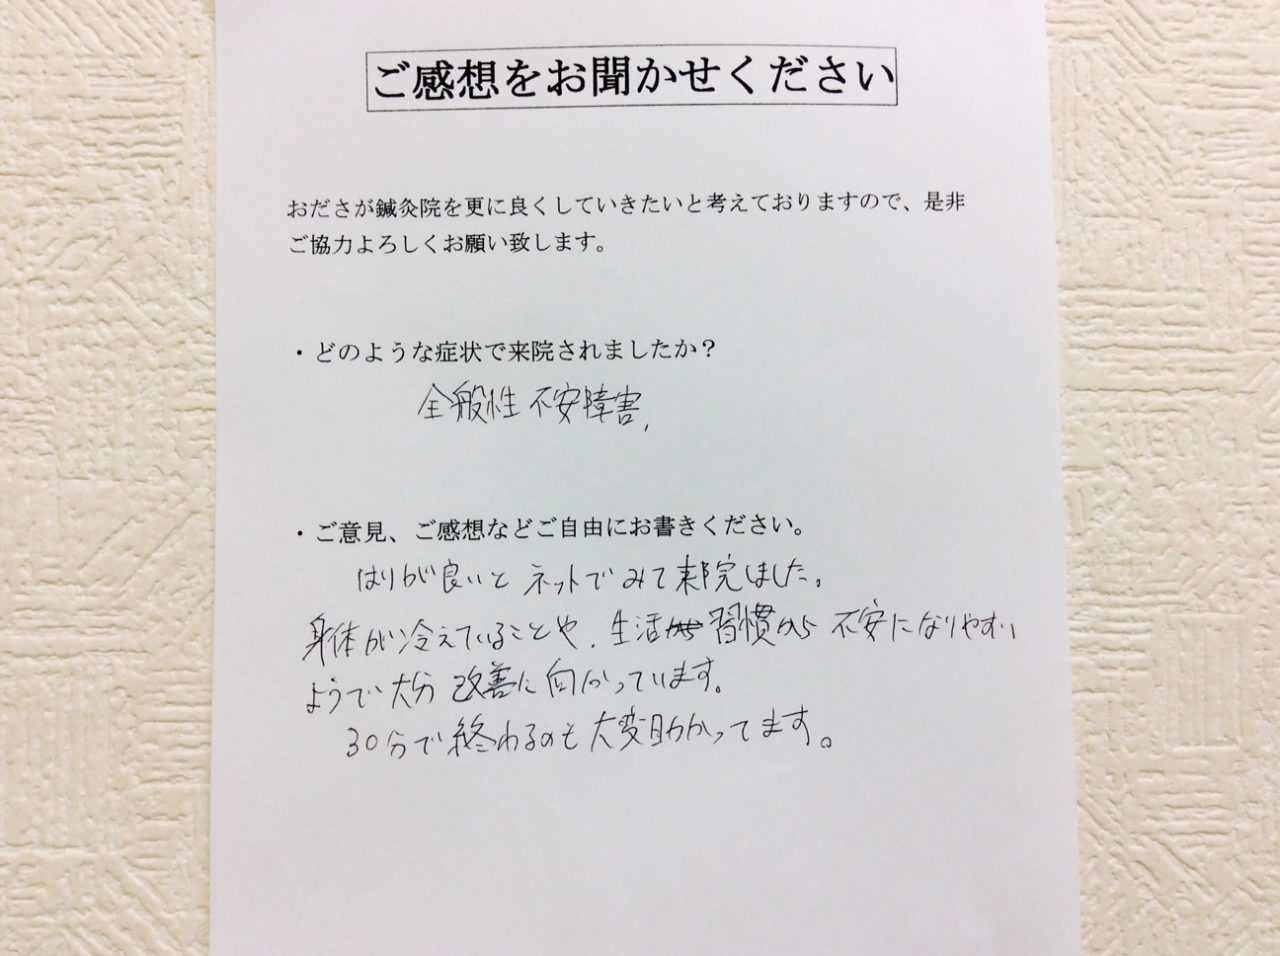 ご感想をお聞かせください
おださが鍼灸院を更に良くしていきたいと考えておりますので、是非
ご協力よろしくお願い致します。
・どのような症状で来院されましたか？
全般性不安障害,
・ご意見、ご感想などご自由にお書きください。
はりが良いとネットでみて来院しました。
身体が冷えていることや、生活習慣から不安になりやすい
ようで大分改善に向かっています。
30分で終わるのも大変助かってます。